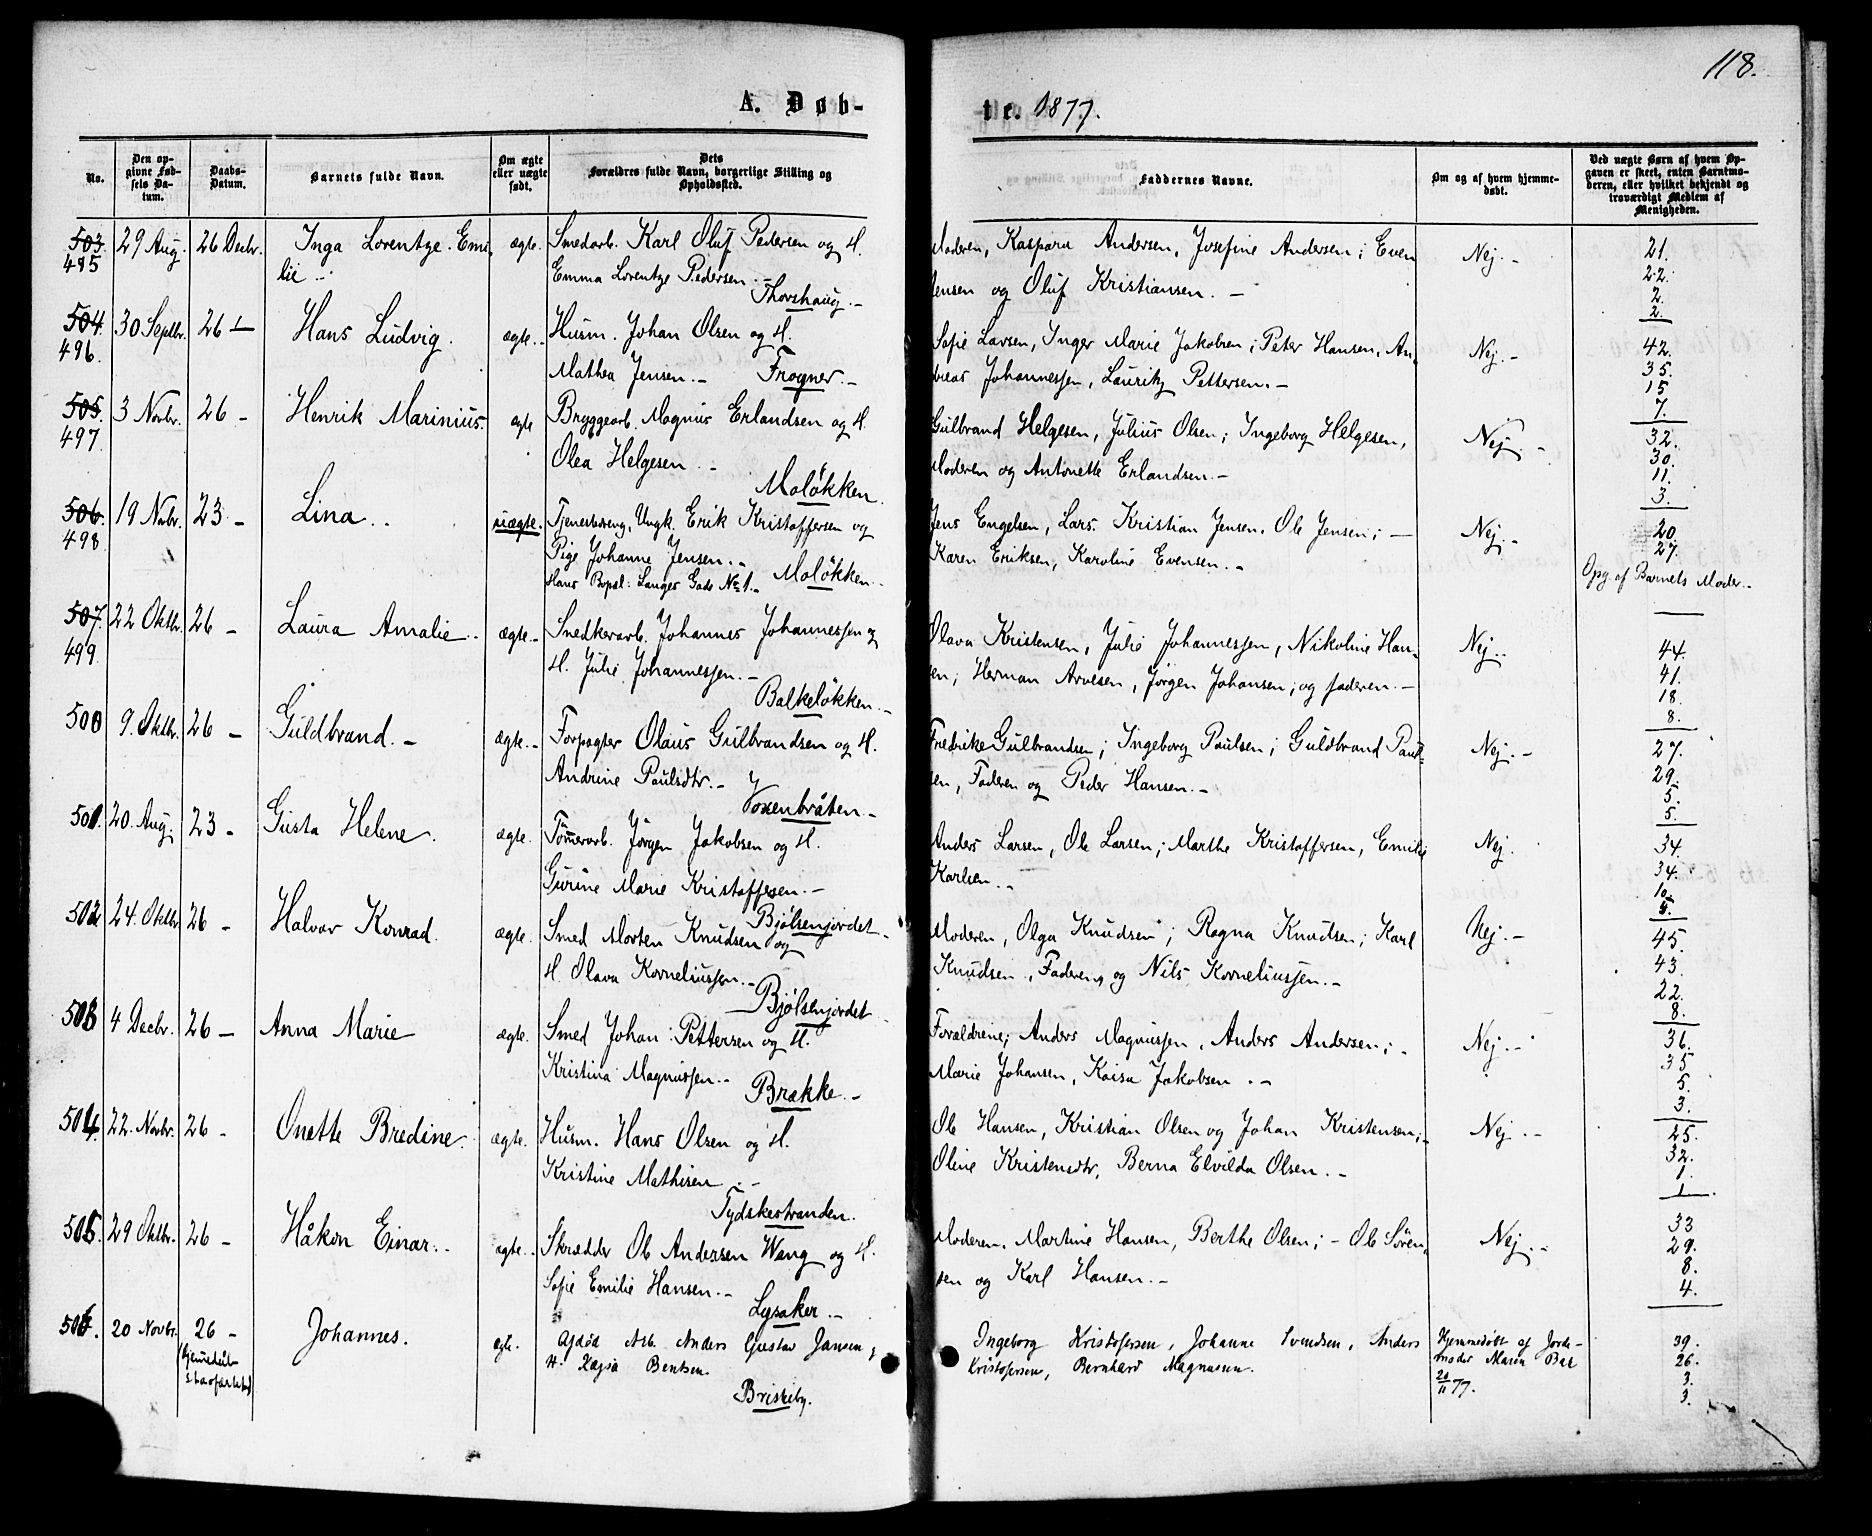 118.
A. Døb-
te. 1877.
No.
Den op-
givne Fød-
sels Da-
tum.
Daabs-
Datum.
Barnets fulde Navn.
Om ægte
eller uægte
født.
Dets
Forældres fulde Navn, borgerlige Stilling og
Opholdssted.
Faddernes Navne.
Om og af hvem hjemme-
døbt.
Ved uægte Børn af hvem Op-
gaven er skeet, enten Barnemo-
deren, eller hvilket bekjendt og
troværdigt Medlem af
Menigheden.
503. 29 Aug. 26 Decbr. Inga Lorentze Emi- ægte. Smedarb. Karl Oluf Pedersen og H. Moderen, Kaspara Andersen, Josefine Andersen; Even Nej.- 21.
495 lie .- Emma Lorentze Pedersen .- Jensen og Oluf Kristiansen. - 22.
Thorshaug.- 2.
2.
504. 30 Septbr. 26 - Hans Ludvig. ægte.. Husm. Johan Olsen og H. Sofie Larsen, Inger Marie Jakobsen; Peter Hansen, An- Nej.- 42.
496. Mathea Jensen.- Frogner.- dreas Johannessen, Lauritz Pettersen.- 35.
15
7.
505. 3 Novbr. 26 - Henrik Marinius. ægte Bryggearb. Magnus Erlandsen og H. Gulbrand Helgesen, Julius Olsen; Ingeborg Helgesen, Nej.- 32.
497. Olea Helgesen .- Moderen og Antonette Erlandsen.- 30.
Moløkken. 11.
3.
506. 19 Novbr. 23 - Lina.. uægte. Tjenestedreng, Ungk. Erik Kristoffersen og Jens Engelsen, Lars Kristian Jensen, Ole Jensen; - Nej.- 20.
498 Pige Johanne Jensen.. Karen Eriksen, Karoline Evensen.- 27.
Hans Bopæl: Langes Gade No 1.- Moløkken.. Opg. af Barnets Moder.-
507. 22 Oktbr. 26 - Laura Amalie.. ægte.- Snedkerarb. Johannes Johannessen og Olava Kristensen, Julie Johannessen, Nikoline Han- Nej.. 44.
499. H. Julie Johannessen.- sen; Herman Arvesen, Jørgen Johansen; og Faderen.- 41.
Balkeløkken.- 18.
8.
500 9. Oktbr. 26 - Guldbrand.- ægte.- Forpagter Olaus Gulbrandsen og H. Fredrikke Gulbrandsen; Ingeborg Paulsen; Guldbrand Paul- Nej.- 27.
Andrine Paulsdtr.- sen, Faderen og Peder Hansen.- 29.
Voxenbråten.- 5.
5.
501. 20 Aug. 23 - Gusta Helene. ægte. Tømmerarb. Jørgen Jakobsen og H. Anders Larsen, Ole Larsen; Marthe Kristoffersen, Emilie Nej. 34.
Gurine Marie Kristoffesen.- Karlsen.. 34.
Bjølsenjordet.- 10
5.
502 24. Oktbr. 26 - Halvor Konrad. ægte. Smed Morten Knudsen og Moderen, Olga Knudsen; Ragna Knudsen; Karl Nej.- 45.
H. Olava Korneliussen.- Knudsen, Faderen, og Nils Korneliussen.- 43.
Bjølsenjordet 22.
8.
503 4 Decbr. 26 - Anna Marie ægte. Smed Johan Pettersen og H. Forældrene; Anders Magnussen, Anders Andersen; - Nej.- 36.
Kristina Magnussen.- Marie Johansen, Kaisa Jakobsen .- 35
Brække.- 5.
3.
504. 22. Novbr. 26 - Onette Bredine. ægte. Husm. Hans Olsen og H. Ole Hansen, Kristian Olsen og Johan Kristensen; Nej.- 25.
Kristine Mathisen .- Oline Kristensdtr, Berna Elvilda Olsen.- 32.
Tydskestranden. 1.
1
505. 29 Oktbr. 26 - Håkon Einar.. ægte.. Skrædder Ole Andersen Wang og H. Moderen, Martine Hansen, Berthe Olsen; - Ole Søren- Nej.- 33
Sofie Emilie Hansen.- sen og Karl Hansen.- 29.
Lysaker.- 8.
4.
506. 20 Novbr. 26 - Johannes. ægte. Afdød Arb. Anders Gustav Jansen og Ingeborg Kristofersen, Johanne Svendsen, Anders Hjemmedøbt af Jorde- 39.
(Hjemmedåb H. Kajsa Bentsen. Kristofersen, Bernhard Magnusen. moder Maren Bæ 26.
stadfæstet) Briskeby. 20/11 77. 3.
3.